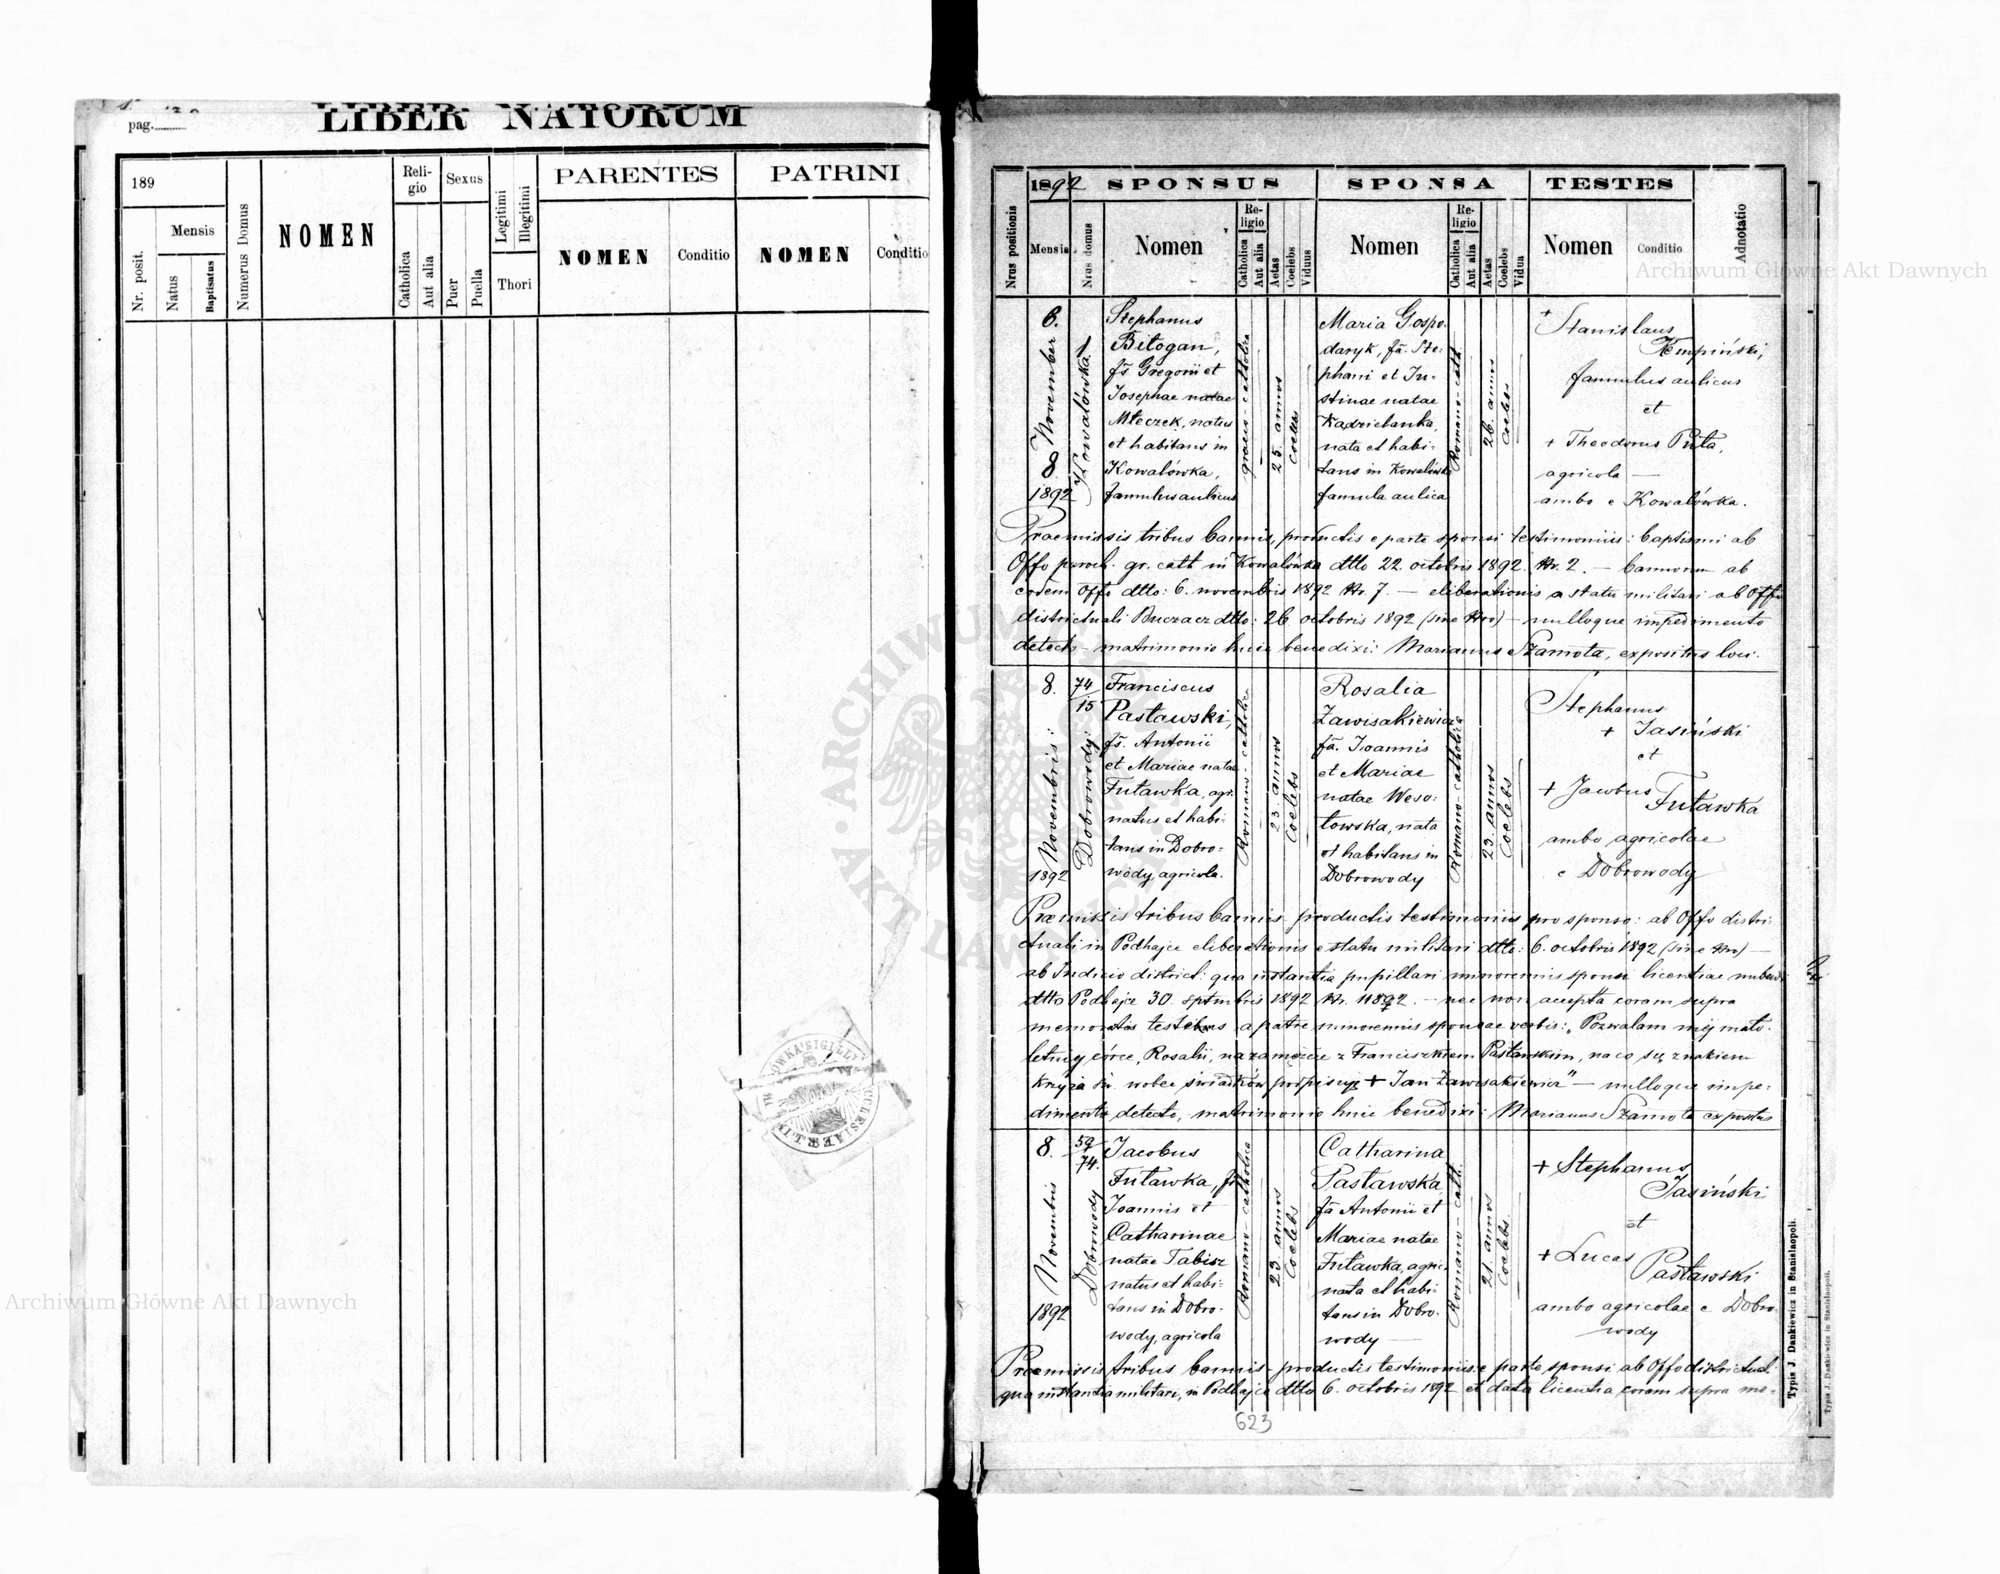 LIBER NATORUM
pag.
189
Nr. posit.
Mensis
Natus
Baptisatus
Numerus Domus
NOMEN
Religio
Catholica
Aut alia
Sexus
Puer
Puella
Legitimi
Illegitimi
Thori
PARENTES
NOMEN
Conditio
PATRINI
NOMEN
Conditio
Nrus positionis
1892
Mensis
Nrus domus
SPONSUS
Nomen
Re-
ligio
Catholica
Aut alia
Aetas
Coelebs
Viduus
SPONSA
Nomen
Re-
ligio
Catholica
Aut alia
Aetas
Coelebs
Vidua
TESTES
Nomen
Conditio
Adnotatio
6.
November
8
1892
1
Kowalówka.
Stephanus
Bitogan,
fs Gregorii et
Josephae natae
Mleczek, natus
et habitans in
Kowalowka,
famulus aulicus
graeco-catholica
25. annos
coelebs
Maria Gospo-
daryk, fa. Ste-
phani et Ju-
stinae natae
Kądzielanka,
nata et habi-
tans in Kowalówka
famula aulica
Romano-cath.
26. annos
coelebs
+ Stanislaus
Kempiński,
famulus aulicus
et
+ Theodorus Puta,
agricola —
ambo e Kowalówka.
Praemissis tribus bannis, productis e parte sponsi testimoniis: baptismi ab
Offo paroch. gr. cath in Kowalówka dtto 22. octobris 1892. Nr. 2. — bannorum ab
eodem Offo dtto: 6. novembris 1892 Nr. 7. — eliberationis a statu militari ab Offo
districtuali Buczacz dtto: 26 octobris 1892 (sine Nro) — nulloque impedimento
detecto — matrimonio huic benedixi: Marianus Szamota, expositus loci.
8.
Novembris:
1892
74/15
Dobrowody:
Franciscus
Pasławski,
fs. Antonii
et Mariae natae
Futawka, agr.
natus et habi-
tans in Dobro-
wody, agricola.
Romano-catholica
23. annos
coelebs
Rosalia
Zawisakiewicz
fa. Joannis
et Mariae
natae Weso-
łowska, nata
et habitans in
Dobrowody
Romano-catholica
23. annos
coelebs
Stephanus
+ Jasiński
et
+ Jacobus Futawka
ambo agricolae
e Dobrowody
Praemissis tribus bannis productis testimoniis pro sponso: ab Offo distri-
ctuali in Podhajce eliberationis e statu militari dtto: 6. octobris 1892 (sine Nro) —
ab Judicio district: qua instantia pupillari minorennis sponsi licentiae nubendi
dtto Podhajce 30. septmbris 1892 Nr. 11892. — nec non accepta coram supra
memoratis testibus a patre minorennis sponsae verbis: „Pozwalam mej mało-
letniej córce, Rosalii, na zamęźcie z Franciszkiem Pasławskim, na co się znakiem
krzyża św. wobec świadków podpisuję + Jan Zawisakiewicz" — nulloque impe-
dimento detecto, matrimonio huic benedixi: Marianus Szamota expositus
8.
Novembris
1892
59/74.
Dobrowody
Jacobus
Futawka, fs
Joannis et
Catharinae
natae Tabisz
natus et habi-
tans in Dobro-
wody, agricola
Romano-catholica
23. annos
coelebs
Catharina
Pasławska
fa Antonii et
Mariae natae
Futawka, agric.
nata et habi-
tans in Dobro-
wody —
Romano-cath.
21. annos
coelebs.
+ Stephanus
Jasiński
et
+ Lucas Pasławski
ambo agricolae e Dobro-
wody
Praemissis tribus bannis — productis testimoniis e parte sponsi ab Offo districtuali
qua instantia militari, in Podhajce dtto 6. octobris 1892 et data licentia coram supra me-
623
Typis J. Dankiewicz in Stanislaopoli.
Typis J. Dankiewicz in Stanislaopoli.
Archiwum Główne Akt Dawnych
Archiwum Główne Akt Dawnych